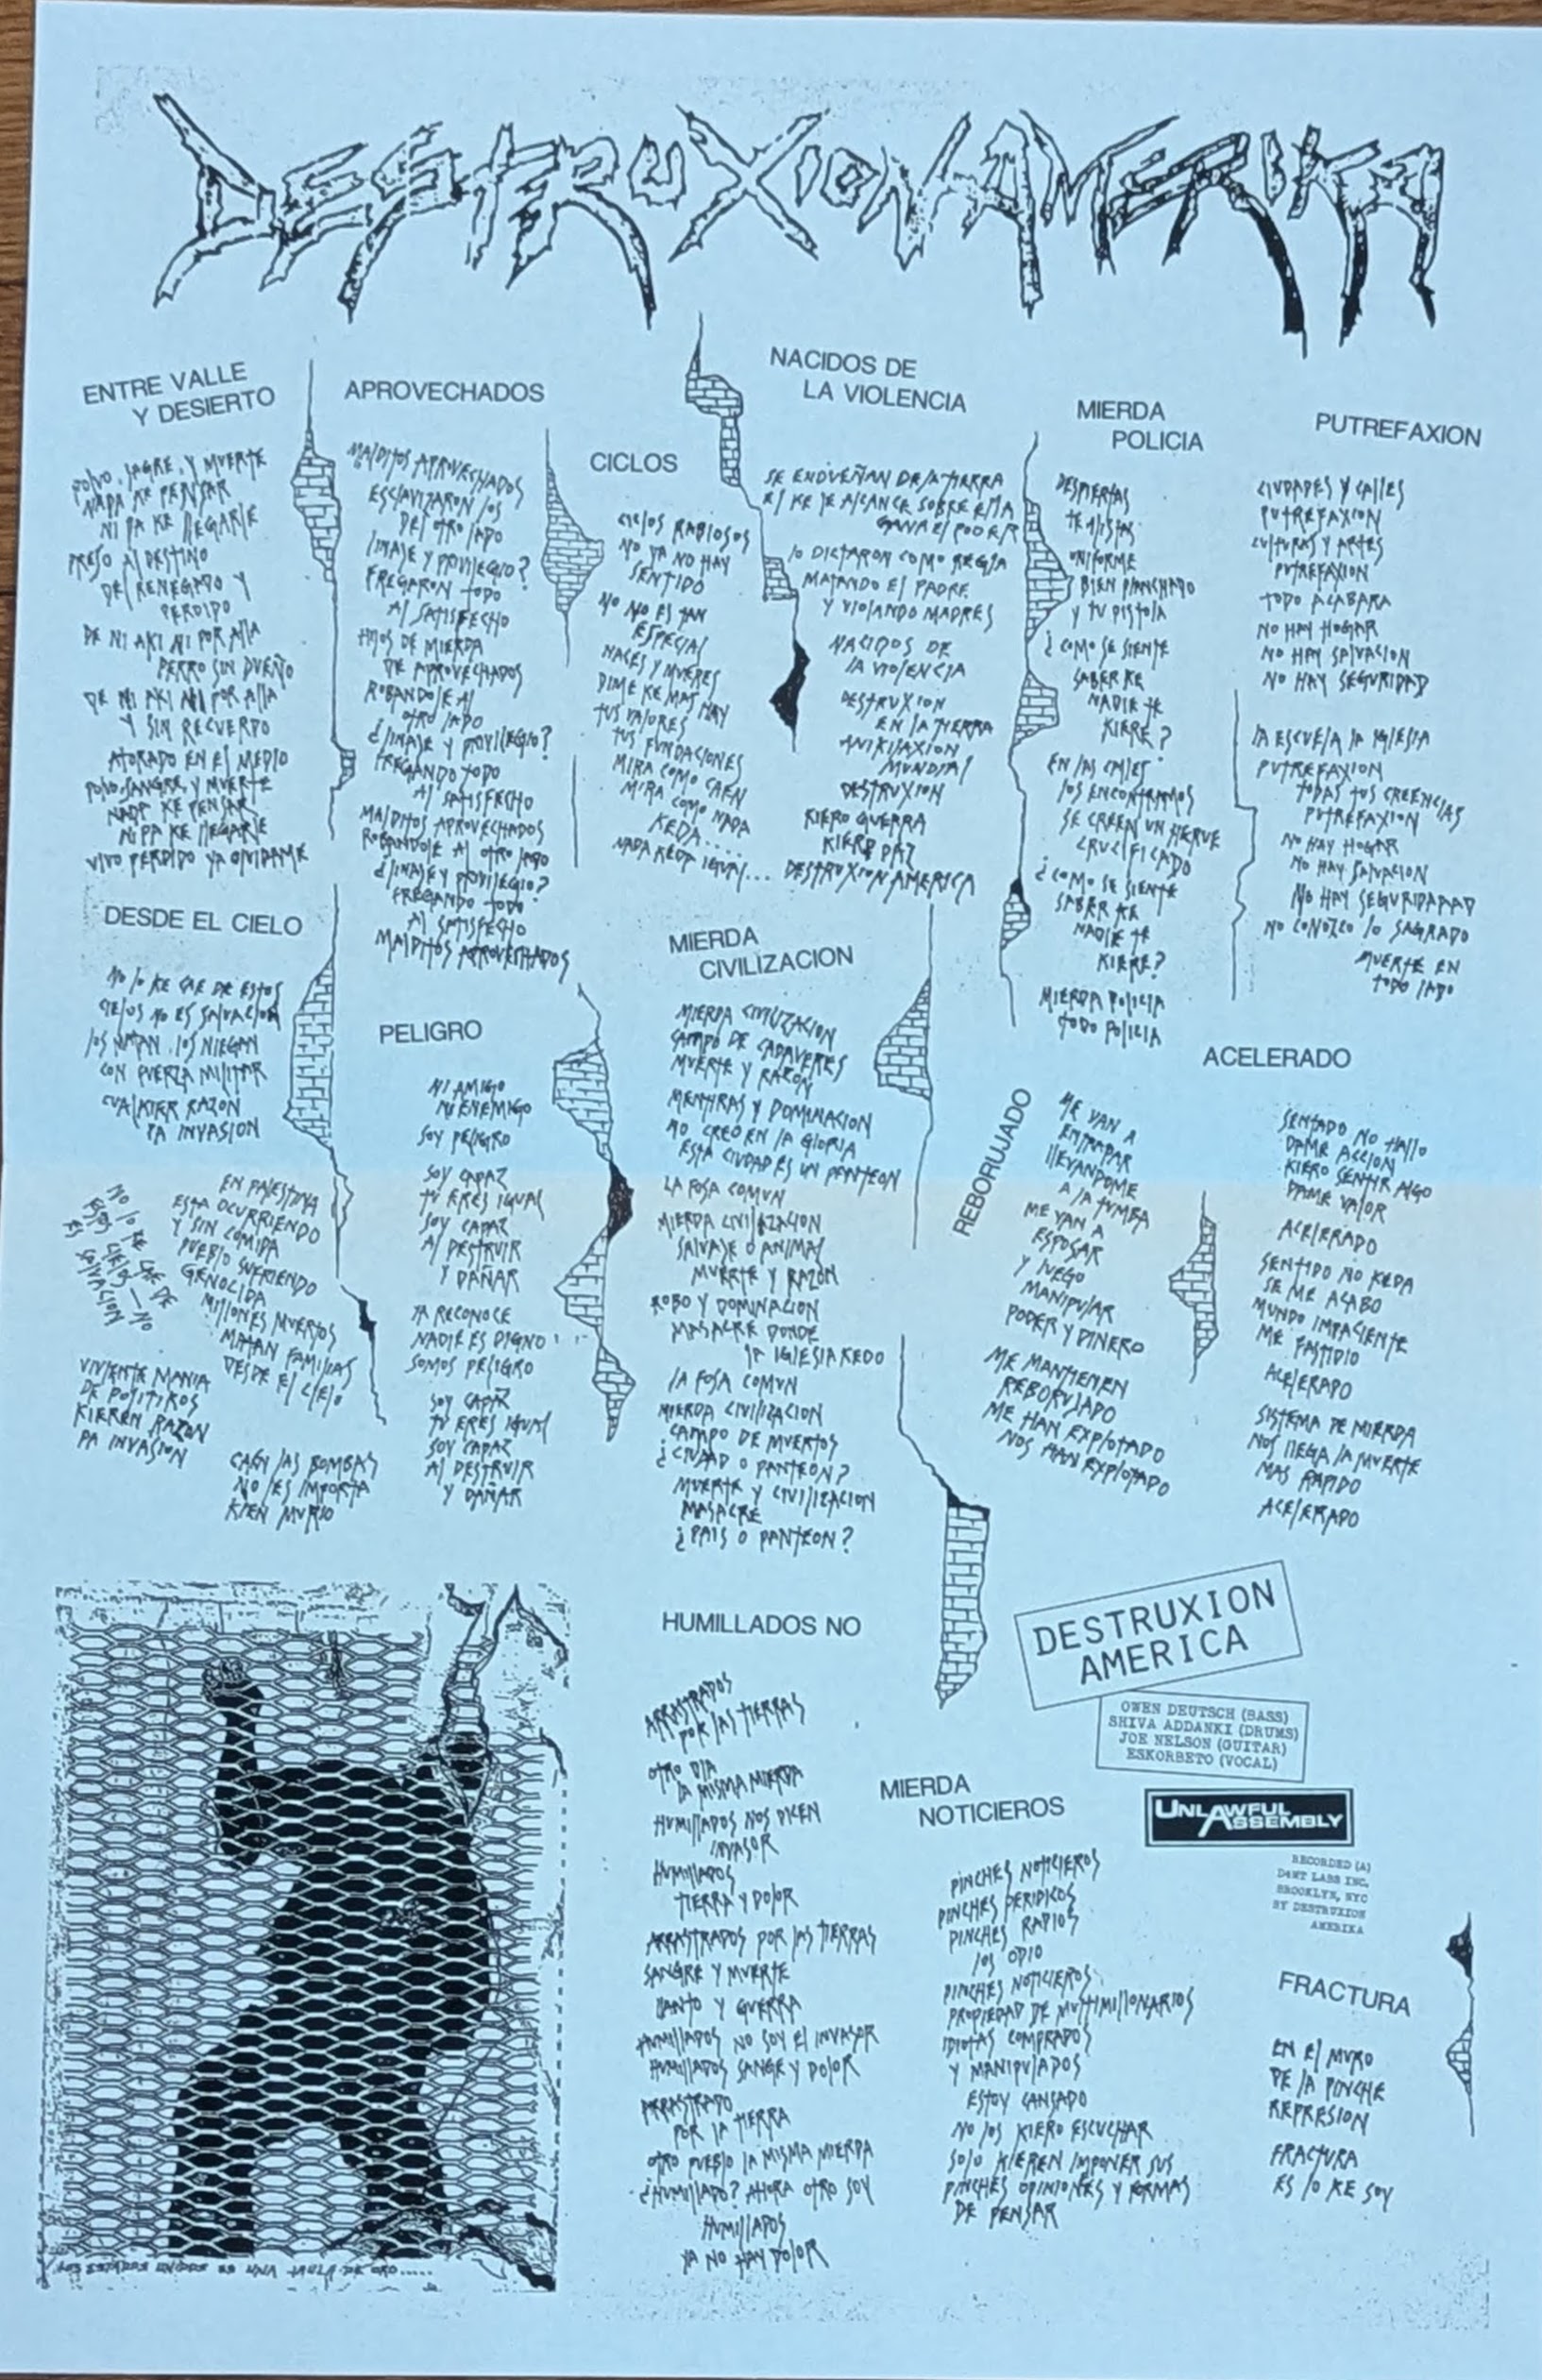 DESTRUXION AMERIKA
ENTRE VALLE
Y DESIERTO
POLVO, SAGRE, Y MUERTE
NADA KE PENSAR
NI PA KE LLEGARLE
PRESO AL DESTINO
DEL RENEGADO Y
PERDIDO
DE NI AKI NI POR ALLA
PERRO SIN DUEÑO
DE NI AKI NI POR ALLA
Y SIN RECUERDO
ATORADO EN EL MEDIO
POLVO, SANGRE, Y MUERTE
NADA KE PENSAR
NI PA KE LLEGARLE
VIVO PERDIDO YA OLVIDAME
APROVECHADOS
MALDITOS APROVECHADOS
ESCLAVIZARON LOS
DEL OTRO LADO
LINAJE Y PRIVILEGIO?
FREGARON TODO
AL SATISFECHO
HIJOS DE MIERDA
DE APROVECHADOS
ROBANDOLE AL
OTRO LADO
¿LINAJE Y PRIVILEGIO?
FREGANDO TODO
AL SATISFECHO
MALDITOS APROVECHADOS
ROBANDOLE AL OTRO LADO
¿LINAJE Y PRIVILEGIO?
FREGANDO TODO
AL SATISFECHO
MALDITOS APROVECHADOS
CICLOS
CICLOS RABIOSOS
NO YA NO HAY
SENTIDO
NO NO ES TAN
ESPECIAL
NACES Y MUERES
DIME KE MAS HAY
TUS VALORES
TUS FUNDACIONES
MIRA COMO CAEN
MIRA COMO NADA
KEDA....
NADA KEDA IGUAL...
NACIDOS DE
LA VIOLENCIA
SE ENDUEÑAN DE LA TIERRA
EL KE LE ALCANCE SOBRE ELLA
GANA EL PODER
LO DICTARON COMO REGLA
MATANDO EL PADRE
Y VIOLANDO MADRES
NACIDOS DE
LA VIOLENCIA
DESTRUXION
EN LA TIERRA
ANIKILAXION
MUNDIAL
DESTRUXION
KIERO GUERRA
KIERO PAZ
DESTRUXION AMERICA
MIERDA
POLICIA
DESPIERTAS
TE ALISTAS
UNIFORME
BIEN PLANCHADO
Y TU PISTOLA
¿COMO SE SIENTE
SABER KE
NADIE TE
KIERE?
EN LAS CALLES
LOS ENCONTRAMOS
SE CREEN UN HERUE
CRUCIFICADO
¿COMO SE SIENTE
SABER KE
NADIE TE
KIERE?
MIERDA POLICIA
TODO POLICIA
PUTREFAXION
CIUDADES Y CALLES
PUTREFAXION
CULTURAS Y ARTES
PUTREFAXION
TODO ACABARA
NO HAY HOGAR
NO HAY SALVACION
NO HAY SEGURIDAD
LA ESCUELA LA IGLESIA
PUTREFAXION
TODAS TUS CREENCIAS
PUTREFAXION
NO HAY HOGAR
NO HAY SALVACION
NO HAY SEGURIDADAD
NO CONOZCO LO SAGRADO
MUERTE EN
TODO LADO
DESDE EL CIELO
NO LO KE CAE DE ESTOS
CIELOS NO ES SALVACION
LOS MATAN, LOS NIEGAN
CON FUERZA MILITAR
CUALKIER RAZON
PA INVASION
EN PALESTINA
ESTA OCURRIENDO
Y SIN COMIDA
PUEBLO SUFRIENDO
GENOCIDA
MILLONES MUERTOS
MATAN FAMILIAS
DESDE EL CIELO
NO LO KE CAE DE
ESTOS CIELOS — NO
ES SALVACION
VIVIENTE MANIA
DE POLITIKOS
KIEREN RAZON
PA INVASION
CAEN LAS BOMBAS
NO LES IMPORTA
KIEN MURIO
PELIGRO
NI AMIGO
NI ENEMIGO
SOY PELIGRO
SOY CAPAZ
TU ERES IGUAL
SOY CAPAZ
AL DESTRUIR
Y DAÑAR
YA RECONOCE
NADIE ES DIGNO
SOMOS PELIGRO
SOY CAPAZ
TU ERES IGUAL
SOY CAPAZ
AL DESTRUIR
Y DAÑAR
MIERDA
CIVILIZACION
MIERDA CIVILIZACION
CAMPO DE CADAVERES
MUERTE Y RAZON
MENTIRAS Y DOMINACION
NO CREO EN LA GLORIA
ESTA CIUDAD ES UN PANTEON
LA FOSA COMUN
MIERDA CIVILIZACION
SALVAJE O ANIMAL
MUERTE Y RAZON
ROBO Y DOMINACION
MASACRE DONDE
LA IGLESIA KEDO
LA FOSA COMUN
MIERDA CIVILIZACION
CAMPO DE MUERTOS
¿CIUDAD O PANTEON?
MUERTE Y CIVILIZACION
MASACRE
¿PAIS O PANTEON?
REBORUJADO
ME VAN A
ENTRAPAR
LLEVANDOME
A LA TUMBA
ME VAN A
ESPOSAR
Y LUEGO
MANIPULAR
PODER Y DINERO
ME MANTIENEN
REBORUJADO
ME HAN EXPLOTADO
NOS HAN EXPLOTADO
ACELERADO
SENTADO NO HALLO
DAME ACCION
KIERO SENTIR ALGO
DAME VALOR
ACELERADO
SENTIDO NO KEDA
SE ME ACABO
MUNDO IMPACIENTE
ME FASTIDIO
ACELERADO
SISTEMA DE MIERDA
NOS LLEGA LA MUERTE
MAS RAPIDO
ACELERADO
HUMILLADOS NO
ARRASTRADOS
POR LAS TIERRAS
OTRO DIA
LA MISMA MIERDA
HUMILLADOS NOS DICEN
INVASOR
HUMILLADOS
TIERRA Y DOLOR
ARRASTRADOS POR LAS TIERRAS
SANGRE Y MUERTE
LLANTO Y GUERRA
HUMILLADOS NO SOY EL INVASOR
HUMILLADOS SANGE Y DOLOR
ARRASTRADO
POR LA TIERRA
OTRO PUEBLO LA MISMA MIERDA
¿HUMILLADO? AHORA OTRO SOY
HUMILLADOS
YA NO HAY DOLOR
DESTRUXION
AMERICA
OWEN DEUTSCH (BASS)
SHIVA ADDANKI (DRUMS)
JOE NELSON (GUITAR)
ESKORBETO (VOCAL)
UNLAWFUL
ASSEMBLY
RECORDED (A)
D4MT LABS INC.
BROOKLYN, NYC
BY DESTRUXION
AMERIKA
MIERDA
NOTICIEROS
PINCHES NOTICIEROS
PINCHES PERIDICOS
PINCHES RADIOS
LOS ODIO
PINCHES NOTICIEROS
PROPIEDAD DE MULTIMILLONARIOS
IDIOTAS COMPRADOS
Y MANIPULADOS
ESTOY CANSADO
NO LOS KIERO ESCUCHAR
SOLO KIEREN IMPONER SUS
PINCHES OPINIONES Y FORMAS
DE PENSAR
FRACTURA
EN EL MURO
DE LA PINCHE
REPRESION
FRACTURA
ES LO KE SOY
LOS ESTADOS UNIDOS ES UNA JAULA DE ORO.....